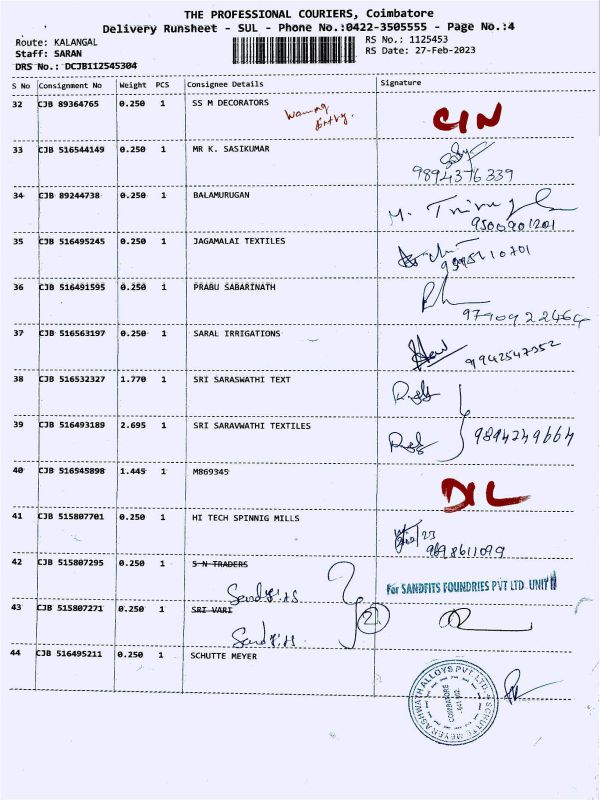 THE PROFESSIONAL COURIERS, Coimbatore
Delivery Runsheet - SUL - Phone No.:0422-3505555 - Page No.:4
Route: KALANGAL
RS No.: 1125453
Staff: SARAN
RS Date: 27-Feb-2023
DRS No.: DCJB112545304
S No Consignment No Weight PCS Consignee Details Signature
32 CJB 89364765 0.250 1 SS M DECORATORS CIN
Entry.
33 CJB 516544149 0.250 1 MR K. SASIKUMAR
9894376339
34 CJB 89244738 0.250 1 BALAMURUGAN
9500901201
35 CJB 516495245 0.250 1 JAGAMALAI TEXTILES
36 CJB 516491595 0.250 1 PRABU SABARINATH
9790922464
37 CJB 516563197 0.250 1 SARAL IRRIGATIONS
9942547352
38 CJB 516532327 1.770 1 SRI SARASWATHI TEXT
39 CJB 516493189 2.695 1 SRI SARAVWATHI TEXTILES
9894249664
40 CJB 516545898 1.445 1 M869345
DIL
41 CJB 515807701 0.250 1 HI TECH SPINNIG MILLS
42 CJB 515807295 0.250 1 S N TRADERS
For SANDFITS FOUNDRIES PVT LTD. UNIT II
Sandfits
43 CJB 515807271 0.250 1 SRI VARI
2
Sandfits
44 CJB 516495211 0.250 1 SCHUTTE MEYER
SCHUTTE MEYER ASHWATH ALLOYS PVT. LTD.
COIMBATORE